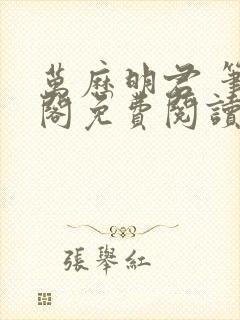 萬歷明君 筆
閣免費閱讀
張舉紅